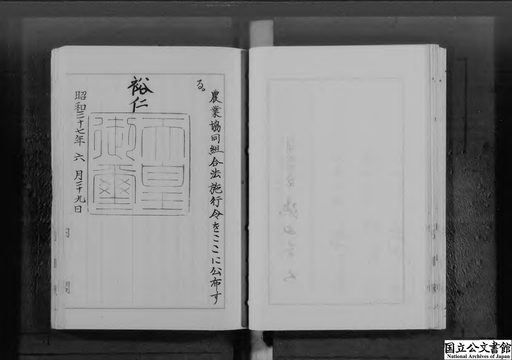 農業協同組合法施行令をここに公布す
る。
裕仁
天皇御璽
昭和三十七年六月二十九日
国立公文書館
National Archives of Japan